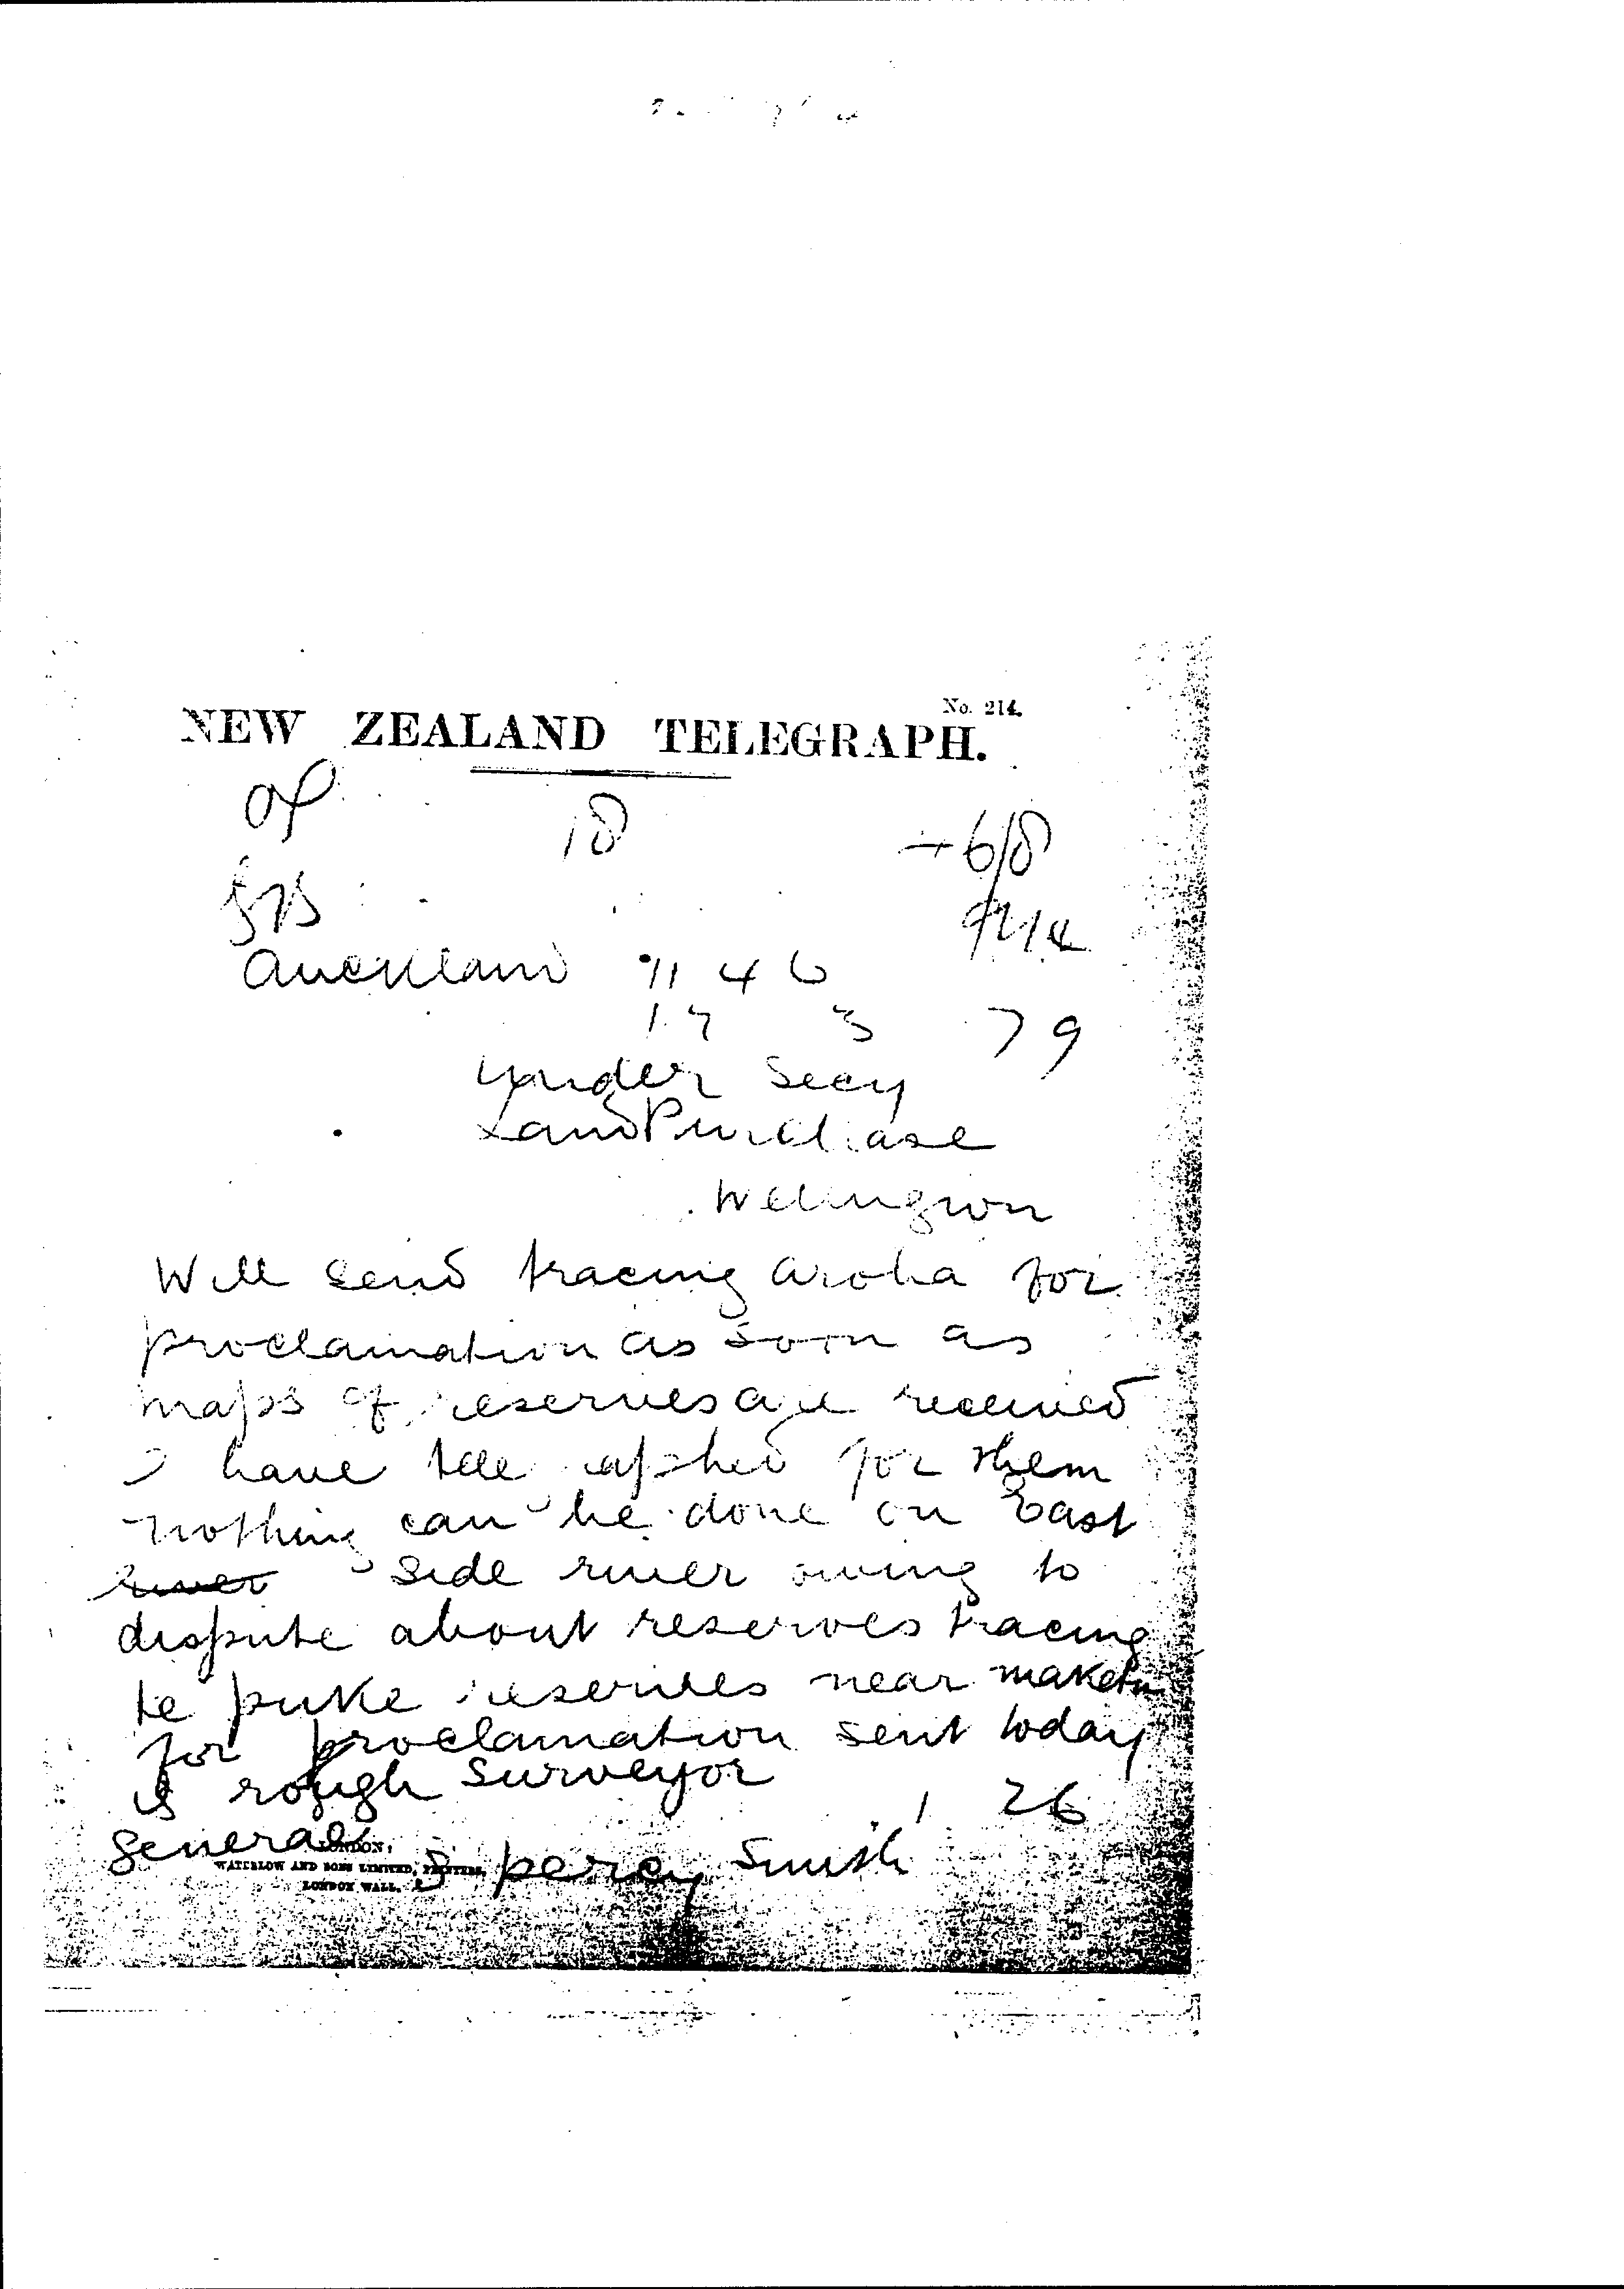 No. 214.
NEW ZEALAND TELEGRAPH.
18
6/8
Auckland 11 46
17 3 79
Under Secy
Land Purchase
Wellington
Will send tracing aroha for
proclamation as soon as
maps of reserves are received
I have telegraphed for them
nothing can be done on East
river side river owing to
dispute about reserves tracing
te puke reserves near maketu
for proclamation sent today
rough surveyor
1 26
General S percy Smith
LONDON:
WATERLOW AND SONS LIMITED, PRINTERS,
LONDON WALL.